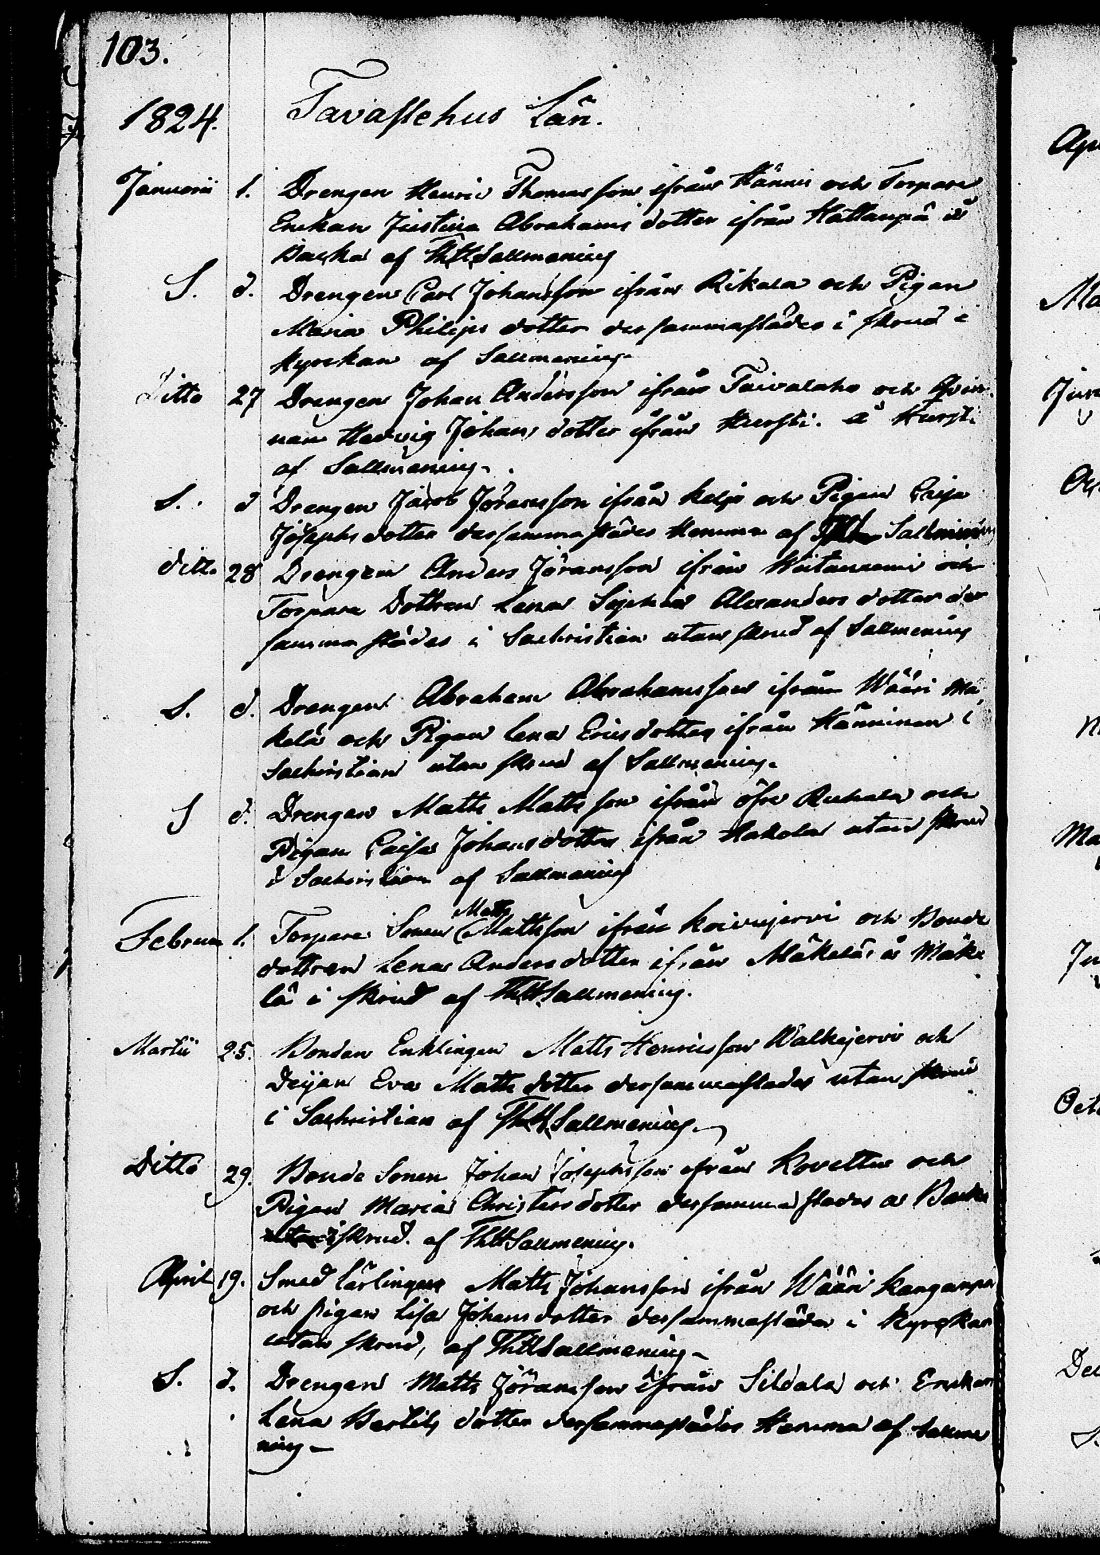 103.
1824. Tavastehus Län.
Januarii 1. Drengen Henric Thomasson ifrån Hännis och Torpare
Enkan Justina Abrahams dotter ifrån Kattanpä å
Backa af Th: H: Sallmening
S. d. Drengen Carl Johansson ifrån Rikala och Pigan
Maria Philips dotter dersammastädes i skrud i
kyrckan af Sallmening
Ditto 27 Drengen Johan Andersson ifrån Taivalaho och Qvin-
nan Hedvig Johans dotter ifrån Kursti. å Kursti
af Sallmening.
S. d Drengen Jacob Jöransson ifrån Keljo och Pigan Caisa
Josephs dotter dersammastädes Hemma af Sallmening
ditto 28 Drengen Anders Jöransson ifrån och
Torpare Dottren Lena Sophia Alexanders dotter der
samma städes i Sachristian utan skrud af Sallmening
S. d. Drengen Abraham Abrahamsson ifrån Wääri Mä-
kelä och Pigan Lena Ericsdotter ifrån Hänninen i
Sachristian utan skrud af Sallmening.
S d. Drengen Matts Mattsson ifrån öfre och
Pigan Caisa Johansdotter ifrån Hakola utan skrud
i Sachristian af Sallmening
Februarii 1. Torpare Sonen Matts Mattsson ifrån Koivujervi och Bonde
dottren Lena Andersdotter ifrån Mäkelä å Mäke
lä i skrud af Th: H: Sallmening.
Martii 25. Bondan Enklingen Matts Henricsson Walkejervi och
Deijan Eva Matts dotter dersammastädes utan skrud
i Sachristian af Th: H: Sallmening.
Ditto 29. Bonde Sonen Johan Josephsson ifrån och
Pigan Maria Christers dotter dersammastädes å Backa
utan i skrud. af Th: H: Sallmening.
April 19. Smed Lärlingen Matts Johansson ifrån Wääri Kanganpä
och pigan Lisa Johans dotter dersammastädes i Kyrckan
utan skrud, af Th: H: Sallmening
S. d. Drengen Matts Jöransson ifrån Sildala och Enckan
Lena Bertils dotter dersammastädes Hemma af Sallme
ning